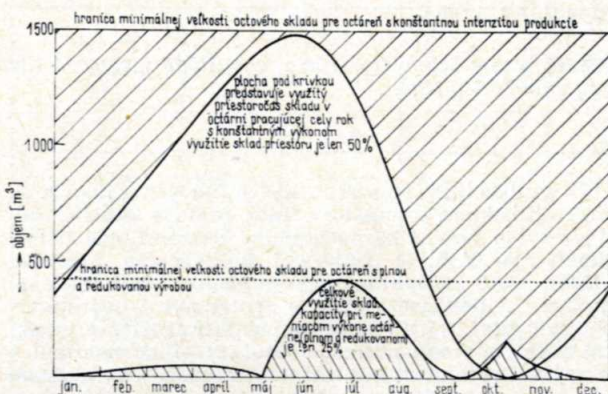 hranica minimálnej veľkosti octového skladu pre octáreň s konštantnou intenzitou produkcie
1500
plocha pod krivkou
predstavuje využitý
priestoročas skladu v
octárni pracujúcej celý rok
s konštantným výkonom
využitie sklad. priestoru je len 50%
1000
objem [m³]
500
hranica minimálnej veľkosti octového skladu pre octáreň s plnou
a redukovanou výrobou
celkové
využitie sklad.
kapacity pri me-
niacom výkone octár-
ne(plnom a redukovanom)
je len 25%
jan. feb. marec apríl máj jún júl aug. sept. okt. nov. dec.